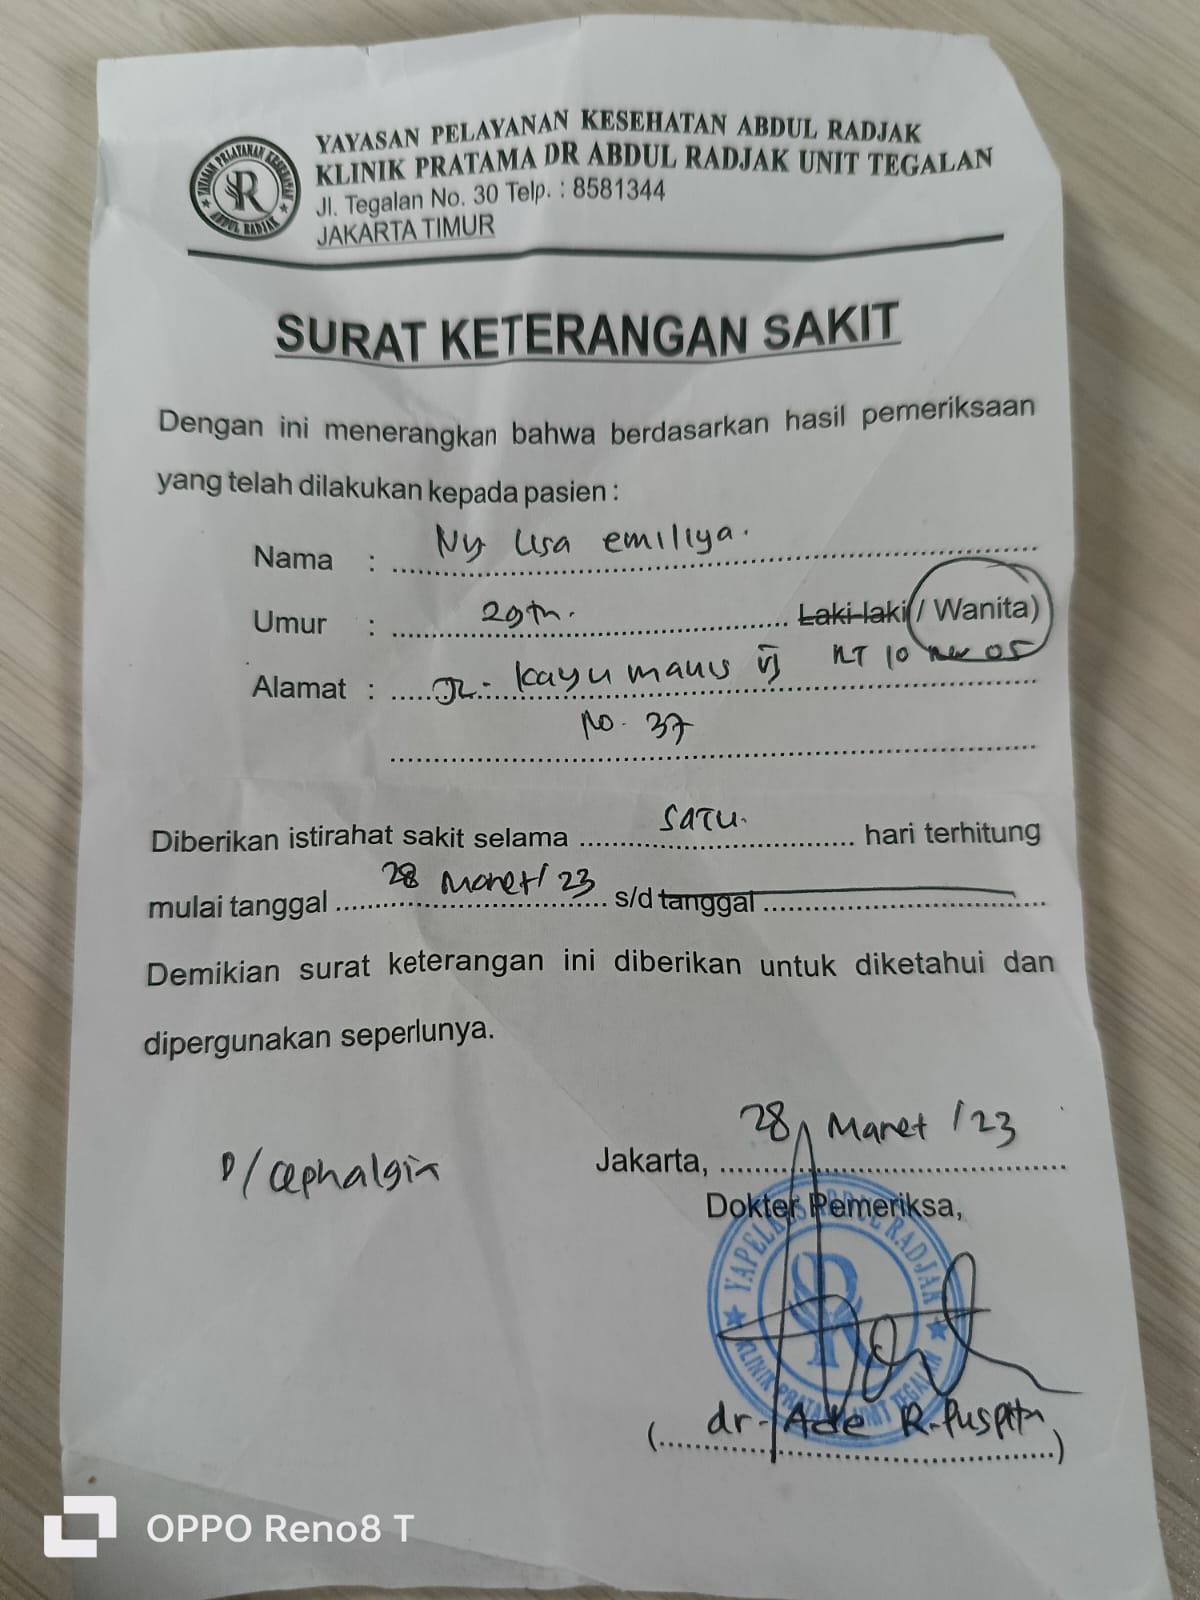 YAYASAN PELAYANAN KESEHATAN ABDUL RADJAK
KLINIK PRATAMA DR ABDUL RADJAK UNIT TEGALAN
Jl. Tegalan No. 30 Telp. : 8581344
JAKARTA TIMUR
YAYASAN PELAYANAN KESEHATAN
ABDUL RADJAK
SURAT KETERANGAN SAKIT
Dengan ini menerangkan bahwa berdasarkan hasil pemeriksaan
yang telah dilakukan kepada pasien :
Nama : Ny Lisa emiliya.
Umur : 29th. Laki-laki / Wanita)
Alamat : JL. kayu manis VI RT 10 RW 05
No. 37
Diberikan istirahat sakit selama SATU. hari terhitung
mulai tanggal 28 Maret/ 23 s/d tanggal
Demikian surat keterangan ini diberikan untuk diketahui dan
dipergunakan seperlunya.
28 Maret /23
D/ cephalgia
Jakarta,
Dokter Pemeriksa,
YAPELKES ABDUL RADJAK
KLINIK PRATAMA UNIT TEGALAN
(dr. Ade R. Puspita)
OPPO Reno8 T